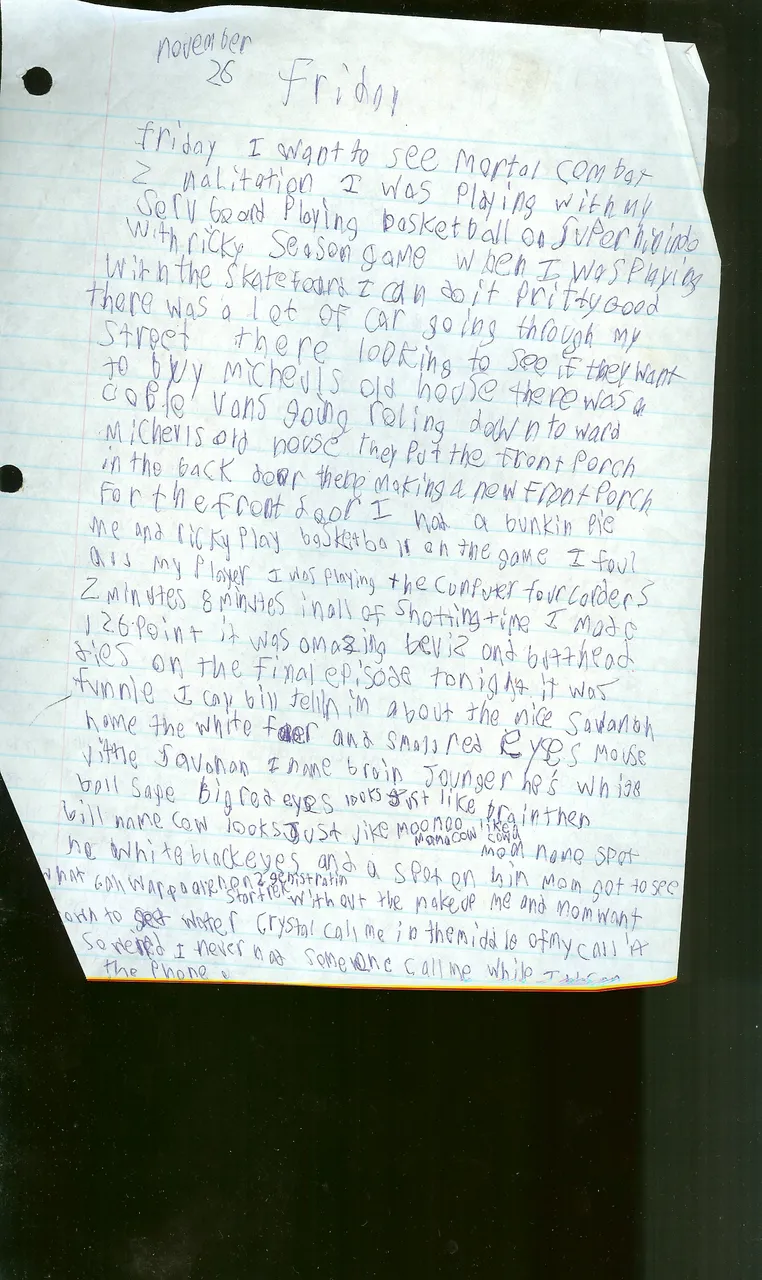 november
26
Friday
friday I want to see mortal combat
2 nalitation I was playing with my
Serv board Playing basketball on Super ninindo
with ricky season game when I was playing
with the skateboard I can do it prifty good
there was a lot of car going through my
street there looking to see if they want
to buy michevls old house there was a
cable vans going roling down to ward
michevls old house they put the front porch
in the back door there making a new front porch
for the front door I had a bunkin pie
me and ricky play basketball on the game I foul
all my player I was playing the computer four corders
2 minutes 8 minutes in all of shotting time I made
126 point it was amazing beviz and butthead
dies on the final episode tonight it was
funnie I cay bill tell him about the nice Savanah
name the white and small red eyes mouse
the Savanah I name brain younger he's
ball sage big red eyes looks just like brain then
bill name cow looks Just like moomoo liked
mamacow cow
he white black eyes and a spot on him mom got to see
mom name spot
what can warpo when 2 genistratin
startrek without the makeup me and mom want
to get water Crystal call me in the middle of my call it
So wered I never had someone call me while I
the phone.